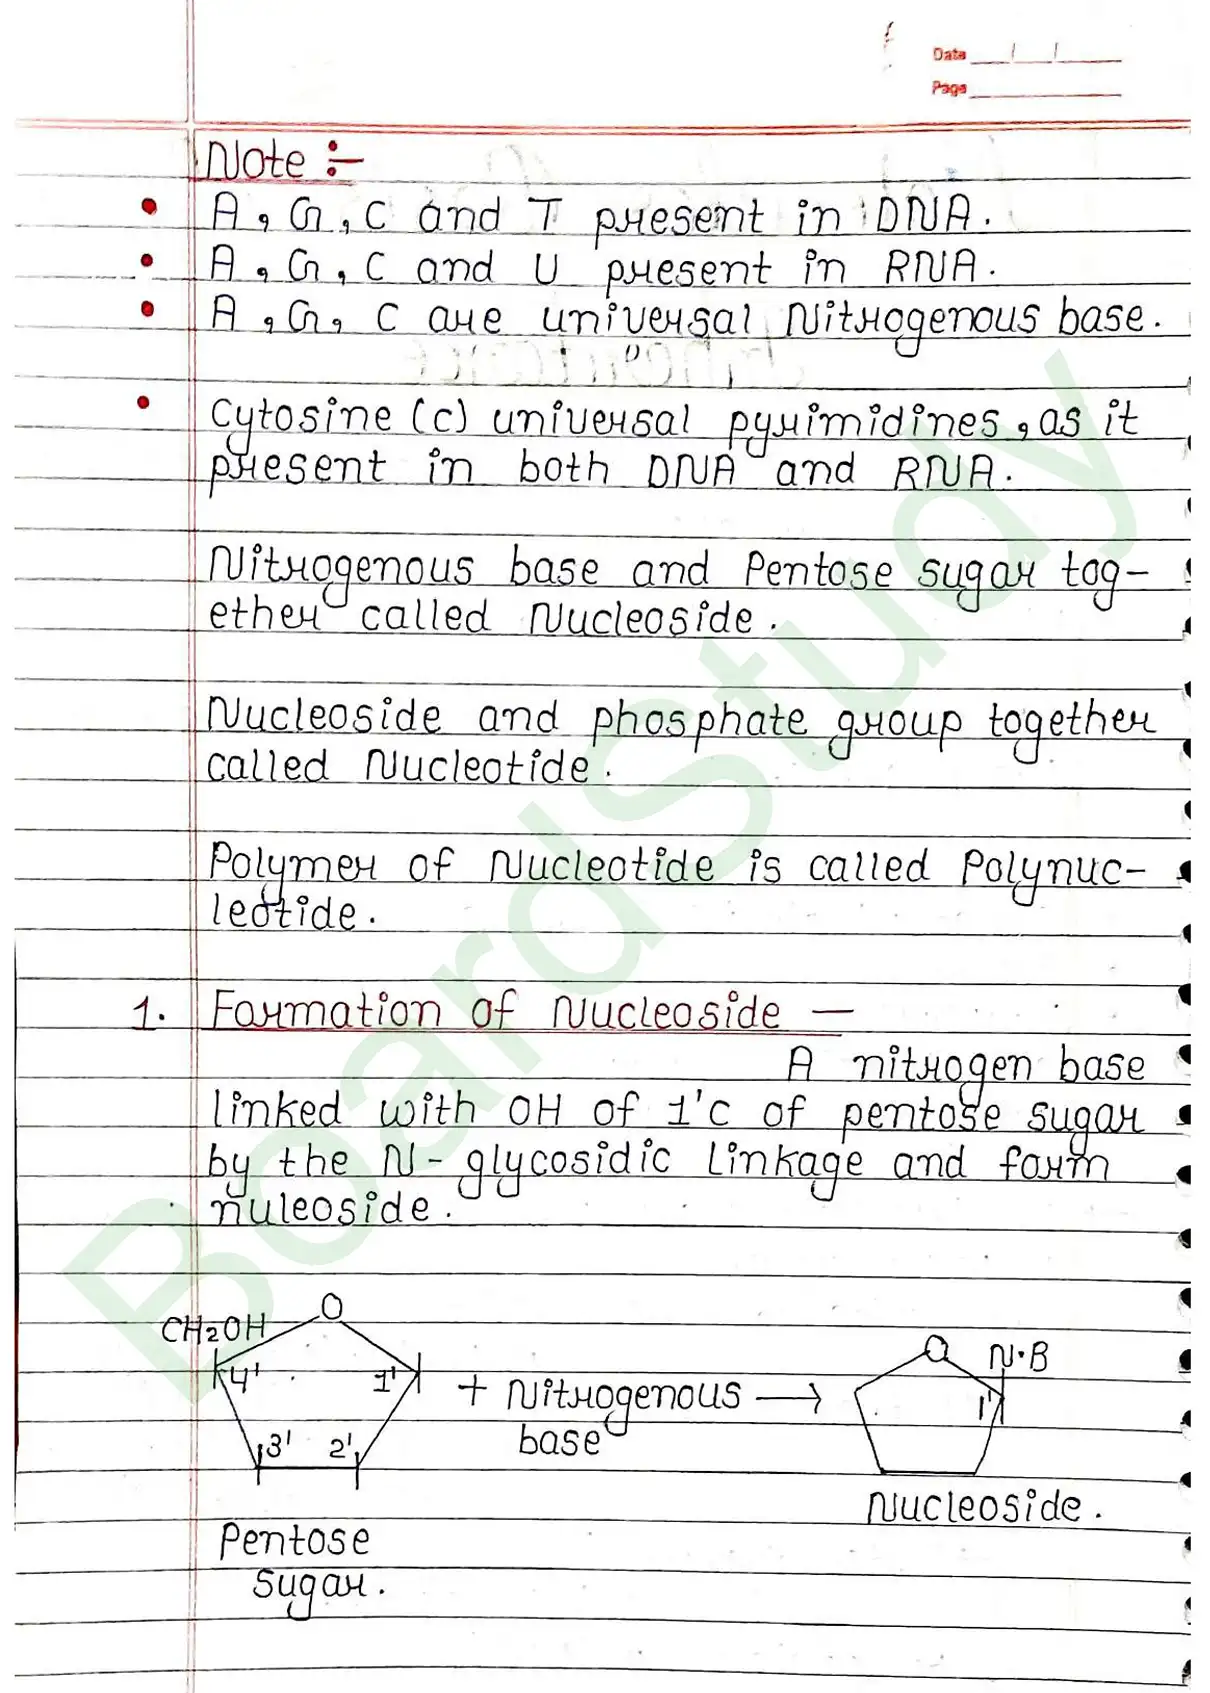 Data
Page
Note :-
• A, G, C and T present in DNA.
• A, G, C and U present in RNA.
• A, G, C are universal Nitrogenous base.
• Cytosine (c) universal pyrimidines, as it
present in both DNA and RNA.
Nitrogenous base and Pentose sugar tog-
ether called Nucleoside.
Nucleoside and phosphate group together
called Nucleotide.
Polymer of Nucleotide is called Polynuc-
leotide.
1. Formation of Nucleoside —
A nitrogen base
linked with OH of 1'C of pentose sugar
by the N-glycosidic Linkage and form
nuleoside.
O
CH2OH
4' 1'
3' 2'
+ Nitrogenous →
base
O N·B
1'
Nucleoside.
Pentose
sugar.
BoardStudy